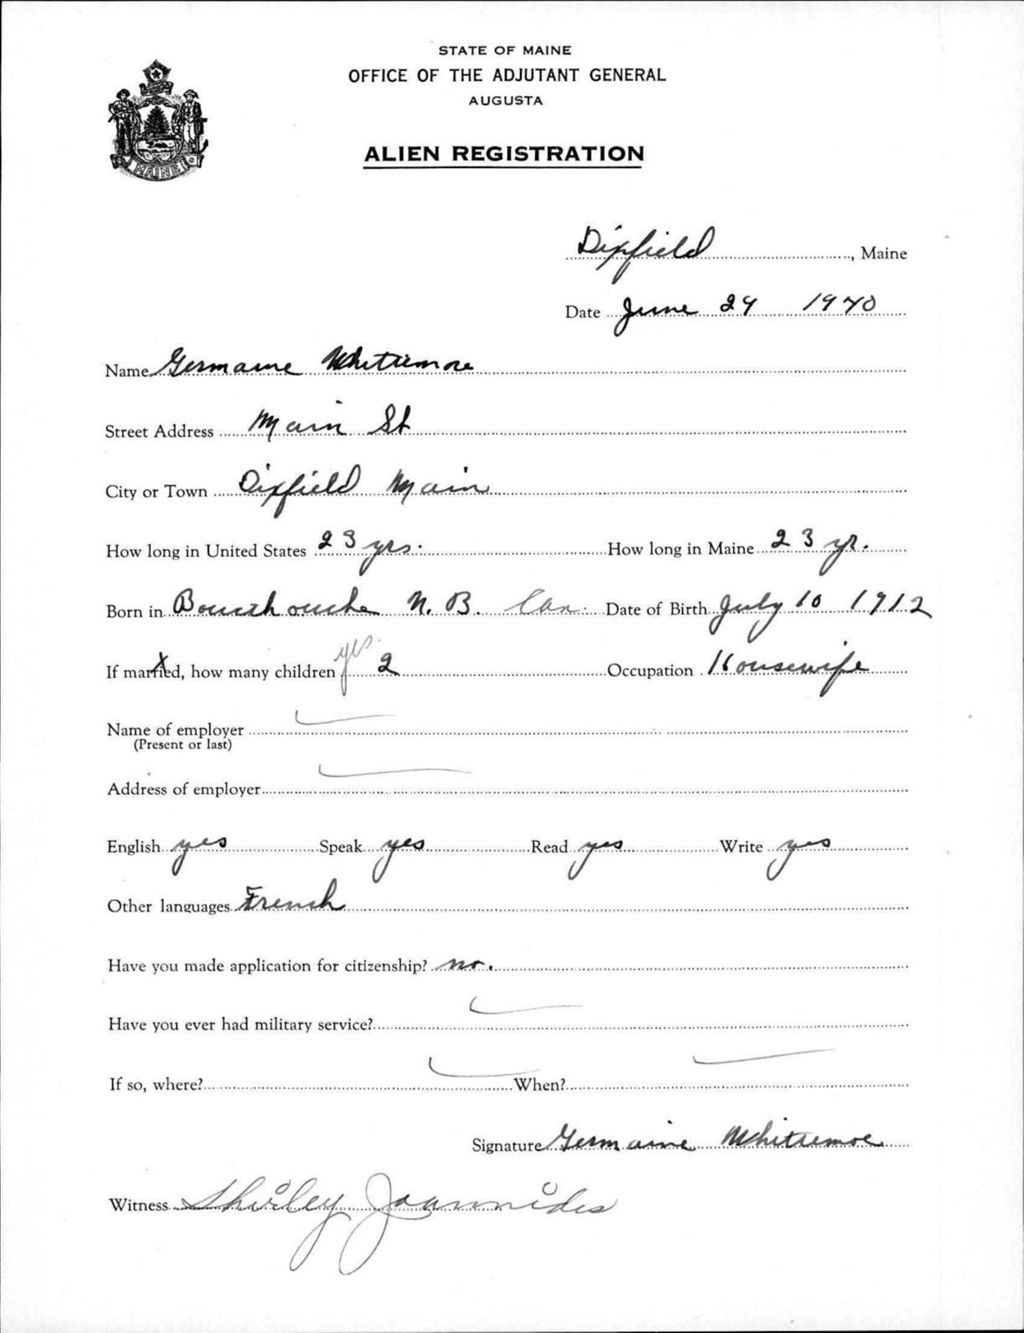 STATE OF MAINE
OFFICE OF THE ADJUTANT GENERAL
AUGUSTA
ALIEN REGISTRATION
MAINE
Dixfield, Maine
Date June 24 1940
Name Germaine Whittemore
Street Address Main St
City or Town Dixfield Main
How long in United States 23 yrs. How long in Maine 23 yr.
Born in N. B. Can. Date of Birth July 10 1912
If married, how many children yes. 2 Occupation Housewife
Name of employer
(Present or last)
Address of employer
English yes Speak yes Read yes Write yes
Other languages French
Have you made application for citizenship? no.
Have you ever had military service?
If so, where? When?
Signature Germaine Whittemore
Witness Shirley Joannides